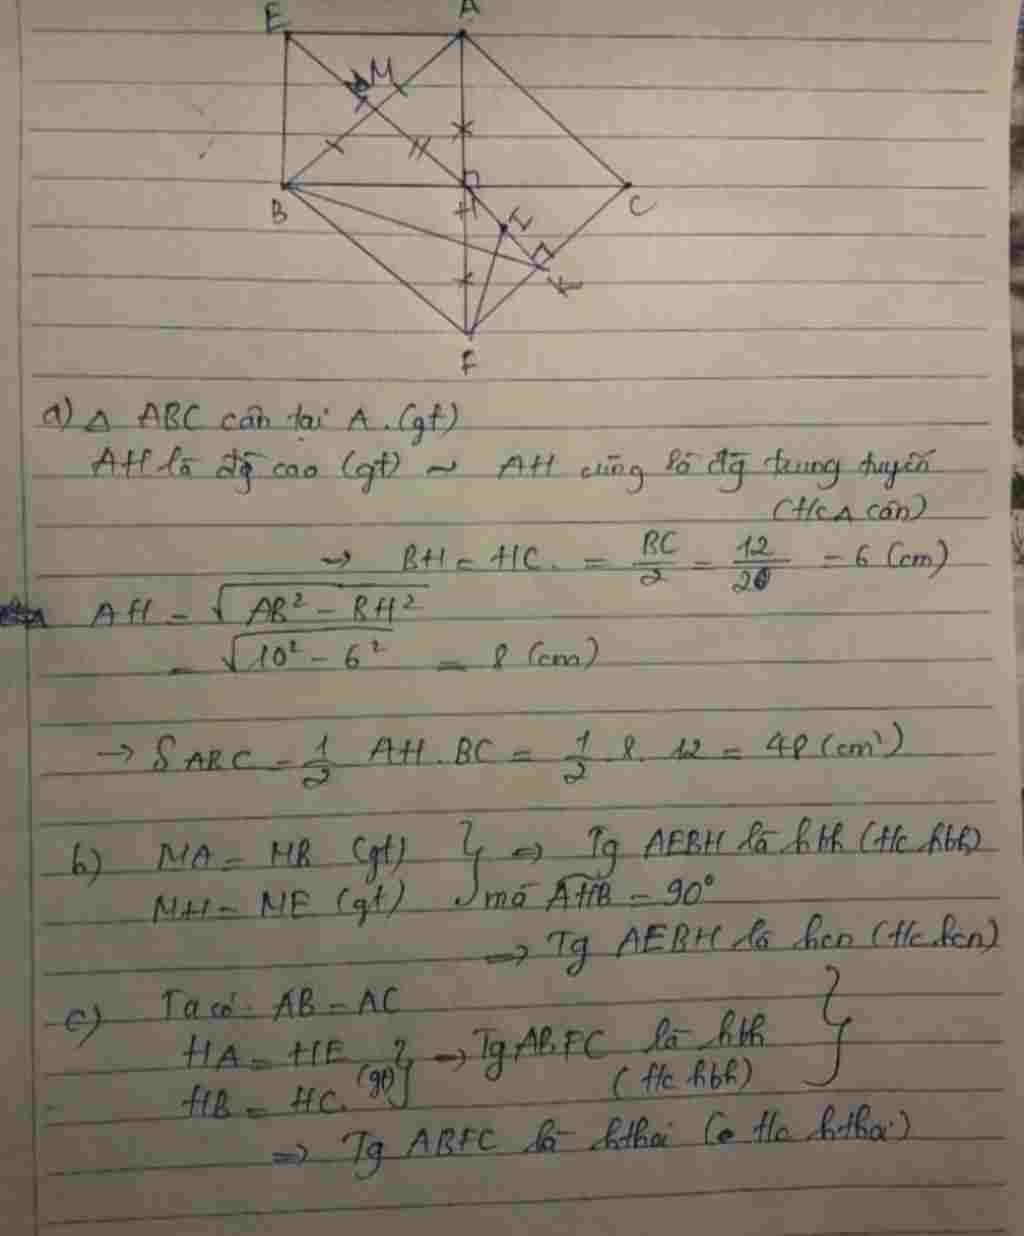 E A
M
B H C
I
K
F
a) Δ ABC cân tại A. (gt)
AH là đg cao (gt) ~ AH cũng là đg trung tuyến
(t/c Δ cân)
→ BH = HC. = BC/2 = 12/2 = 6 (cm)
AH = √(AB² - BH²)
= √(10² - 6²) = 8 (cm)
→ S ABC = 1/2 AH . BC = 1/2 . 8 . 12 = 48 (cm²)
b) MA = MB (gt) } => Tg AEBH là hbh (t/c hbh)
MH = ME (gt) mà AHB = 90°
=> Tg AEBH là hcn (t/c hcn)
c) Ta có: AB = AC
HA = HF } → Tg ABFC là hbh }
HB = HC. (gt) (t/c hbh)
=> Tg ABFC là hthoi ( t/c hthoi)